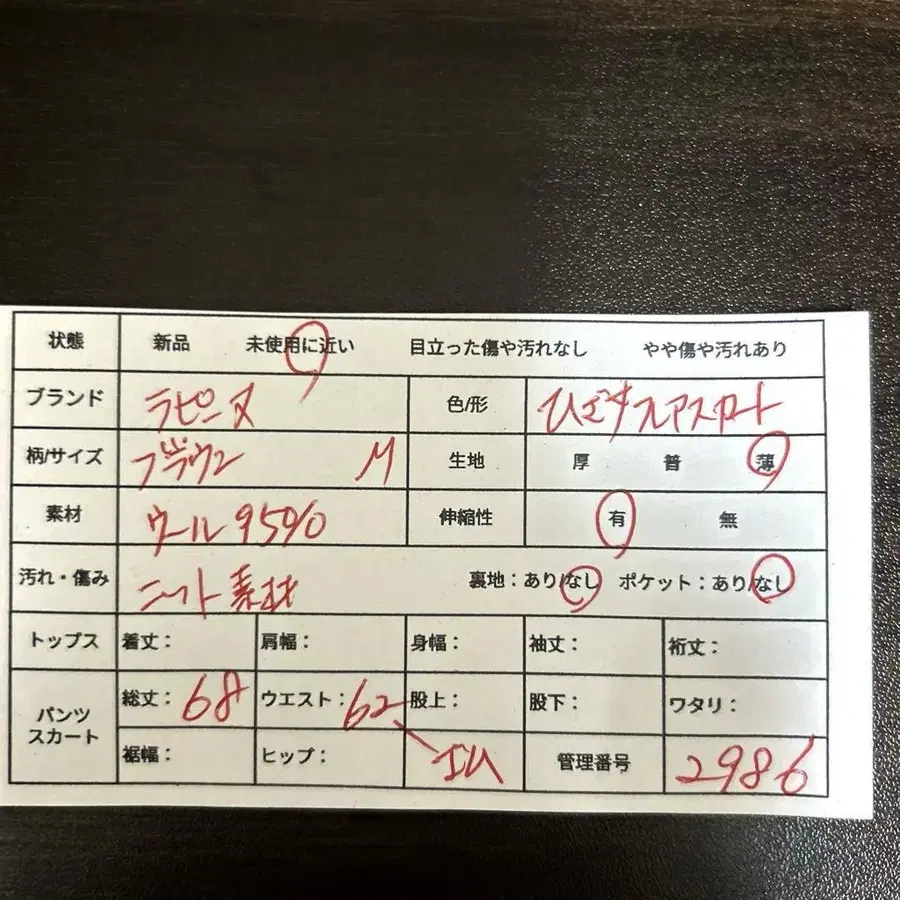 状態 新品 未使用に近い 目立った傷や汚れなし やや傷や汚れあり
ブランド ラピーヌ 色/形 ひざ下フレアスカート
柄/サイズ ブラウン M 生地 厚 普 薄
素材 ウール95% 伸縮性 有 無
汚れ・傷み ニット素材 裏地:あり/なし ポケット:あり/なし
トップス 着丈: 肩幅: 身幅: 袖丈: 裄丈:
パンツ スカート 総丈:68 ウエスト:62 股上: 股下: ワタリ:
裾幅: ヒップ: ゴム 管理番号 2986